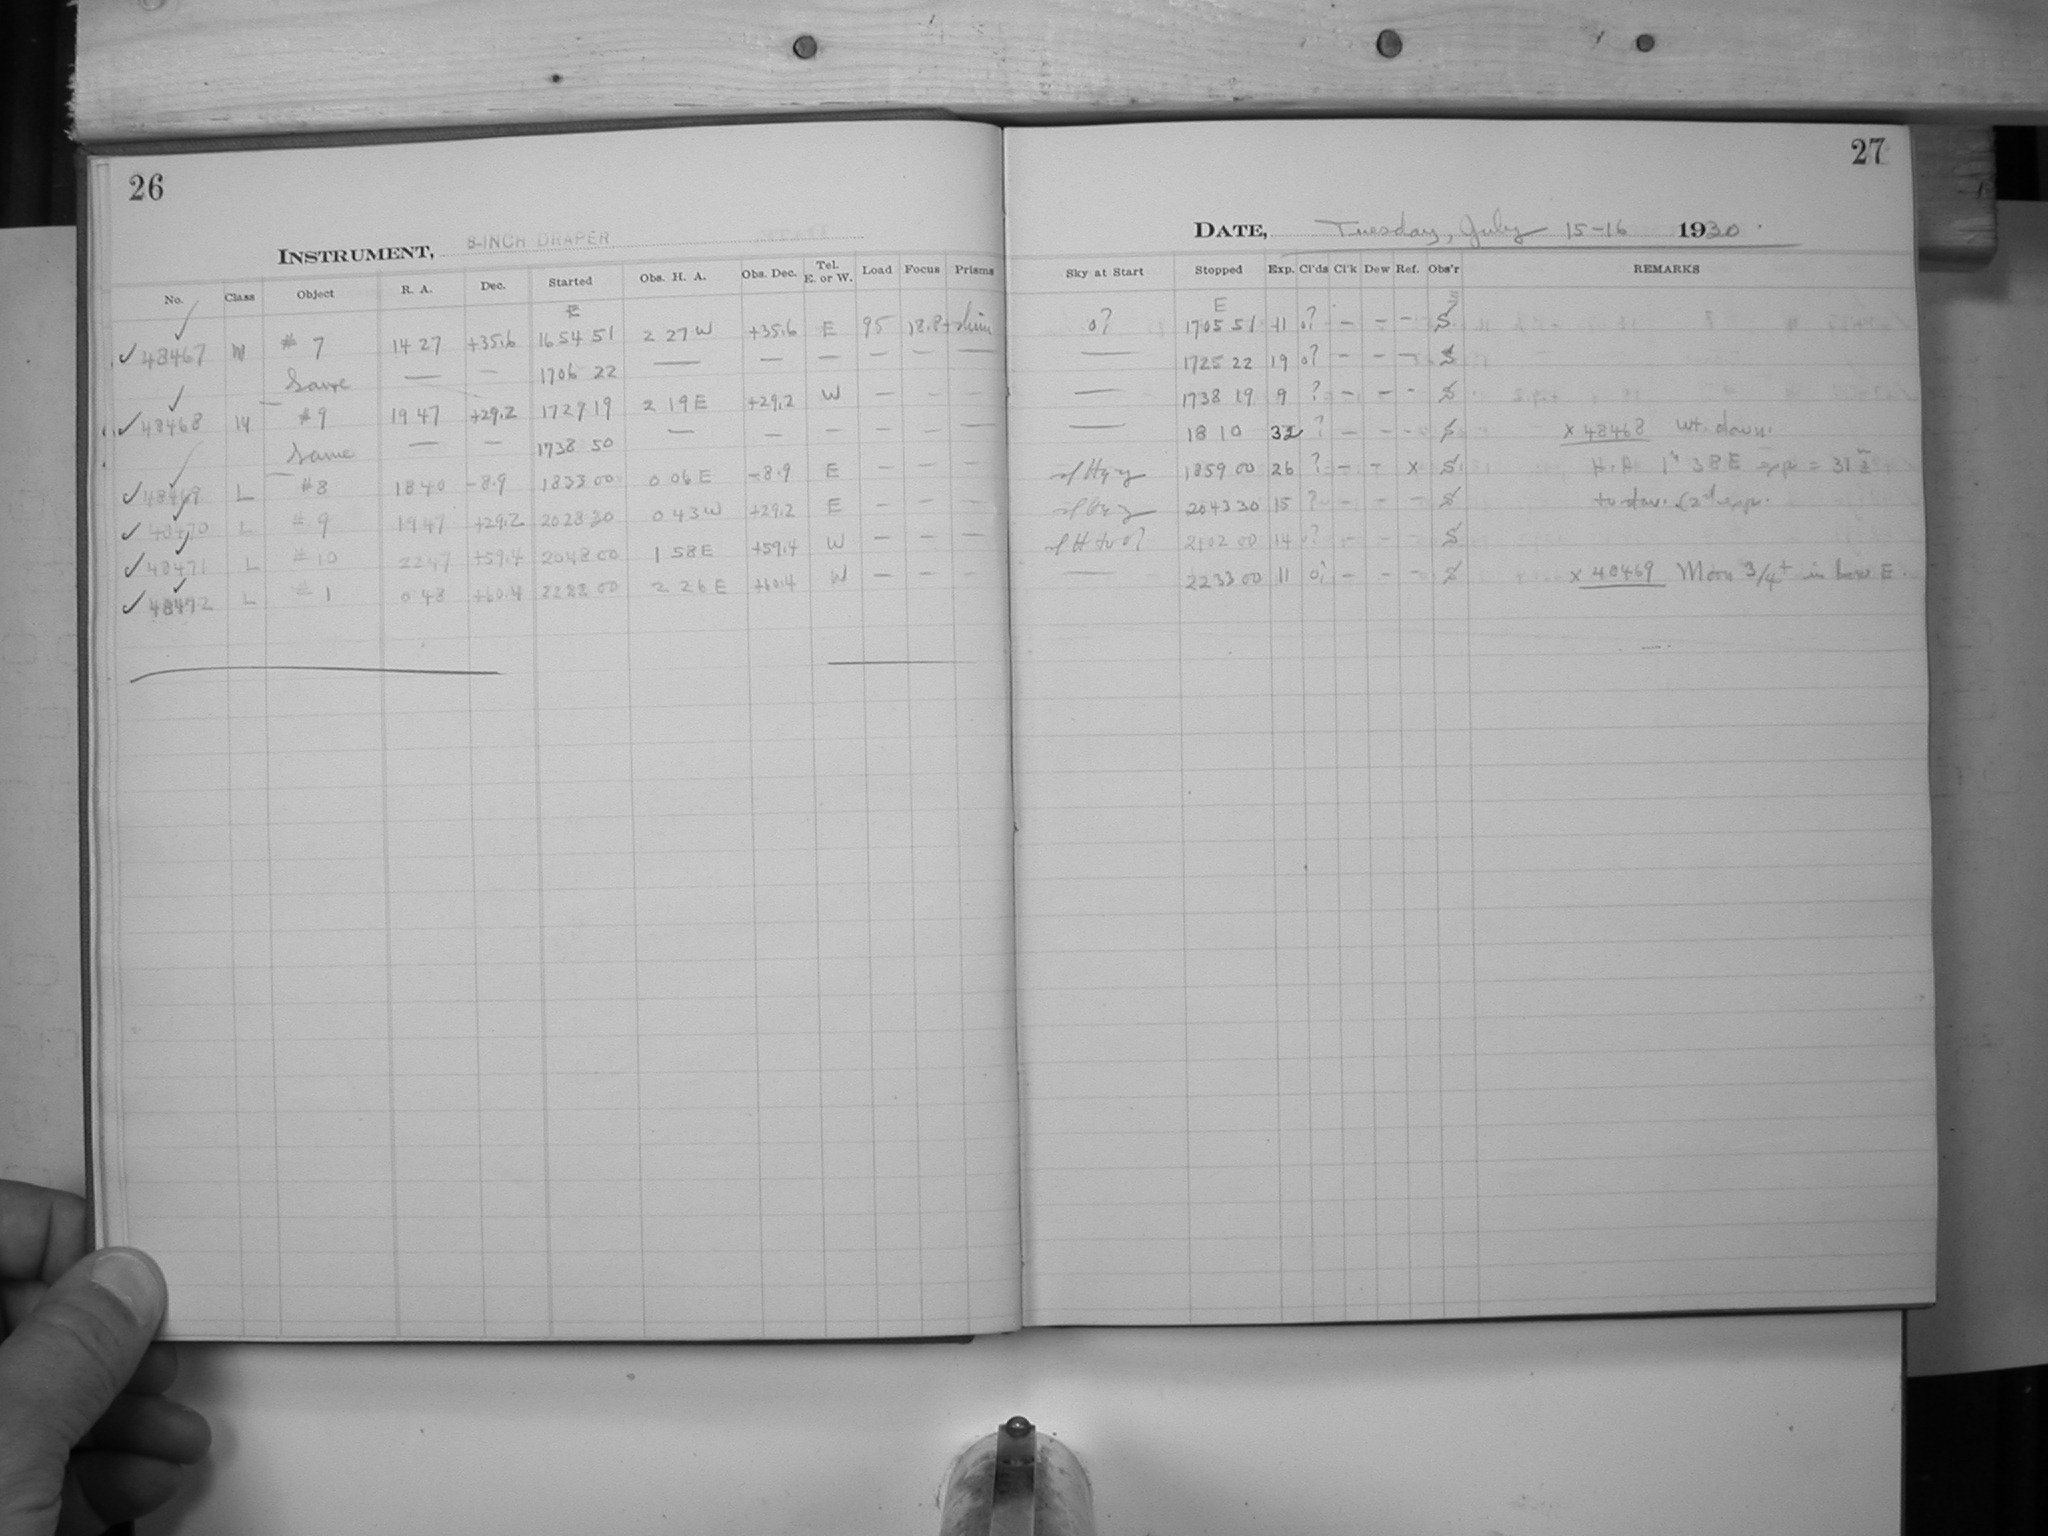 26
INSTRUMENT, 8-INCH DRAPER
No. Class Object R. A. Dec. Started Obs. H. A. Obs. Dec. Tel. E. or W. Load Focus Prisms
E
✓ 48467 M # 7 14 27 +35.6 16 54 51 2 27 W +35.6 E 95
Same — — 1706 22 — — — — — —
✓ 48468 M #9 19 47 +29.2 1729 19 2 19 E +29.2 W — — —
Same — — 1738 50 — — — — — —
✓ 48469 L #8 18 40 -8.9 1833 00 0 06 E -8.9 E — — —
✓ 48470 L # 9 19 47 +29.2 2028 30 0 43 W +29.2 E — — —
✓ 48471 L # 10 22 47 +59.4 2048 00 1 58 E +59.4 W — — —
✓ 48472 L # 1 0 48 +60.4 2222 00 2 26 E +60.4 W — — —
27
DATE, Tuesday, July 15-16 1930.
Sky at Start Stopped Exp. Cl'ds Cl'k Dew Ref. Obs'r REMARKS
E
0? 1705 51 11 0? — — — S
— 1725 22 19 0? — — — S
— 1738 19 9 ? — — — S
— 18 10 32 ? — — — S x 48468 wt. down.
1859 00 26 ? — — x S H.A. 1h 38 E exp = 31
2043 30 15 ? — — — S
2102 00 14 0? — — — S
— 2233 00 11 0? — — — S x 48469 Moon 3/4+ in E.